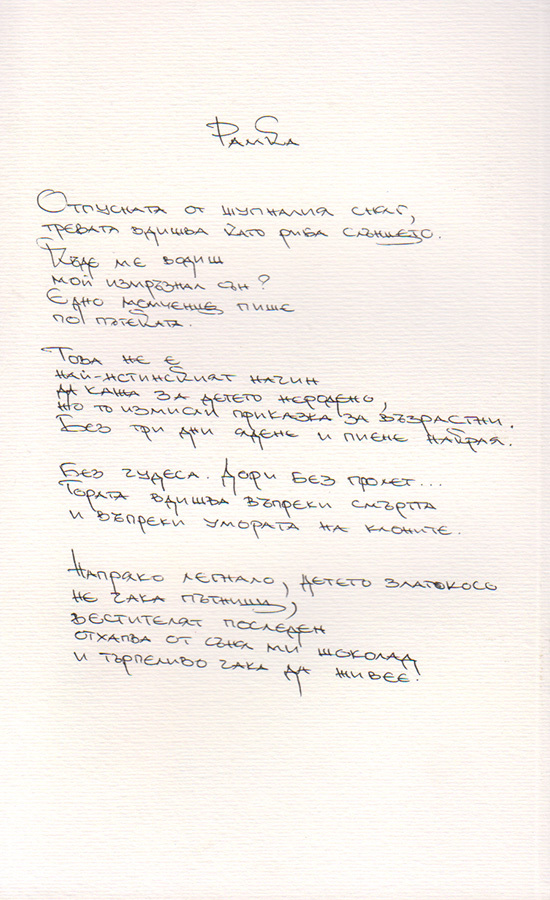 Рамка
Отпусната от шупналия сняг,
тревата вдишва като риба слънцето.
Къде ме водиш
мой измръзнал сън?
Едно момченце пише
по пътеката.
Това не е
най-истинският начин
да кажа за детето неродено,
но то измисли приказка за възрастни.
Без три дни ядене и пиене накрая.
Без чудеса. Дори без пролет...
Гората вдишва въпреки смъртта
и въпреки умората на клоните.
Напряко легнало, детето златокосо
не чака пътници,
вестителят последен
отхапва от съня ми шоколад
и търпеливо чака да живее.